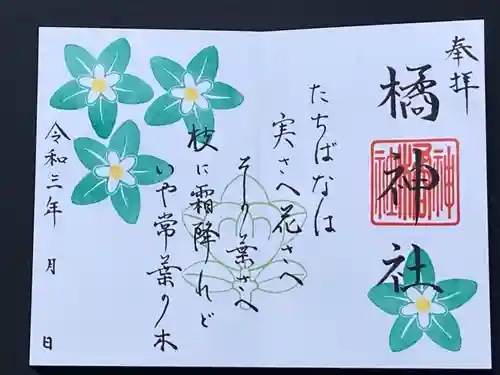 奉拝
橘神社
橘神社
たちばなは
実さへ花さへ
その葉さへ
枝に霜降れど
いや常葉の木
令和三年 月 日